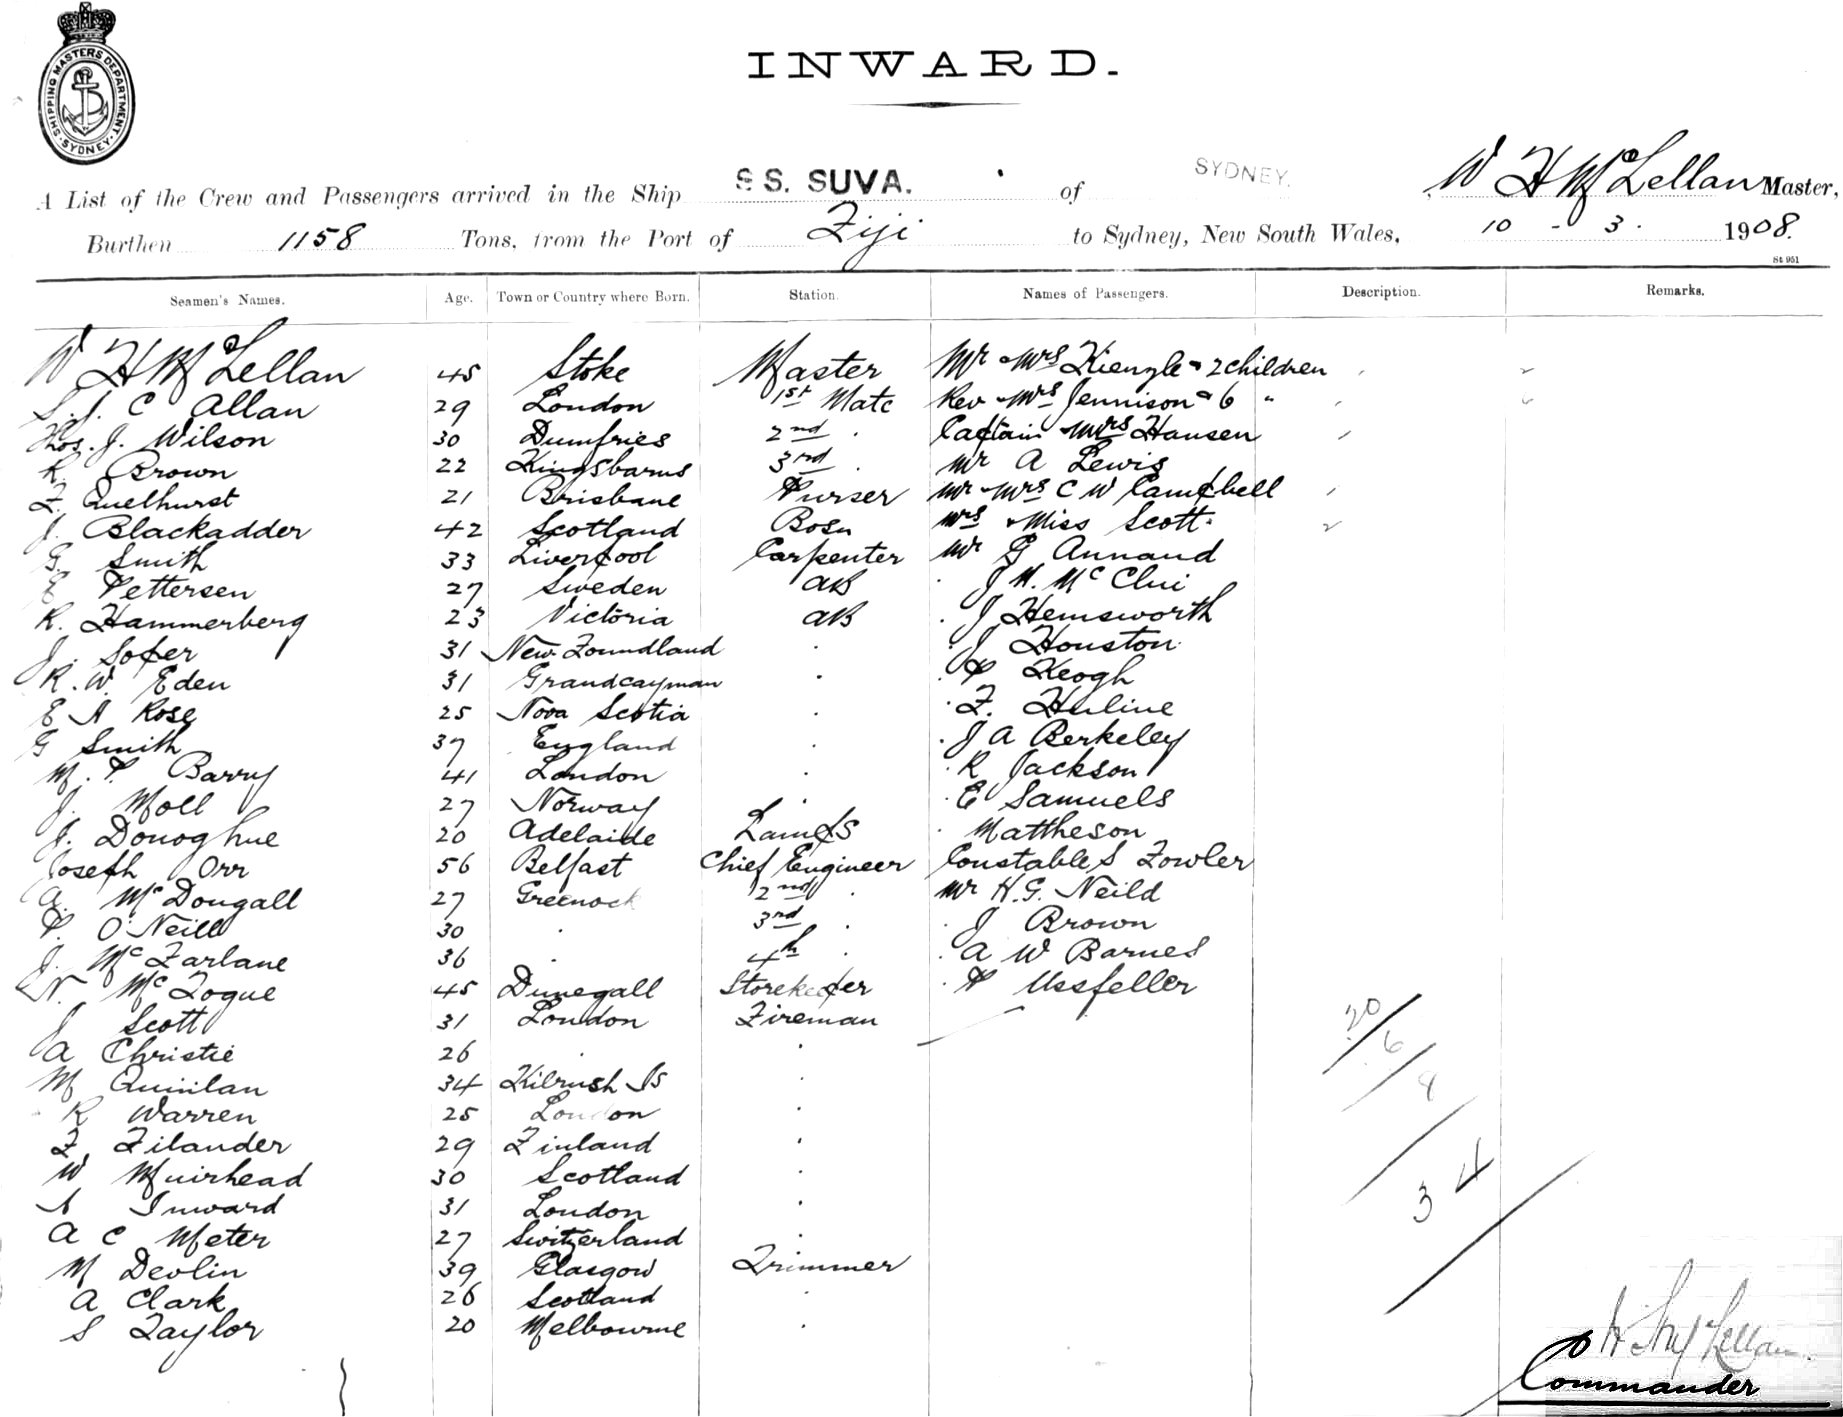 SHIPPING MASTERS DEPARTMENT
SYDNEY
INWARD.
A List of the Crew and Passengers arrived in the Ship S.S. SUVA. of SYDNEY. W H McLellan Master,
Burthen 1158 Tons, from the Port of Fiji to Sydney, New South Wales, 10 - 3 . 1908.
St 951
Seamen's Names. Age. Town or Country where Born. Station. Names of Passengers. Description. Remarks.
W H McLellan 45 Stoke Master Mr & Mrs Kienzle & 2 children
C Allan 29 London 1st Mate Rev & Mrs Jennison & 6 "
Thos. J. Wilson 30 Dumfries 2nd . Captain & Mrs Hansen
R. Brown 22 Kingsbarns 3rd . Mr A Lewis
F. Quelhurst 21 Brisbane Purser Mr & Mrs C W Campbell
J. Blackadder 42 Scotland Bosn Mrs & Miss Scott
G. Smith 33 Liverpool Carpenter Mr G Annand
E Pettersen 27 Sweden AB . J H. McClui
R. Hammerberg 23 Victoria AB . J Hemsworth
J. Soper 31 New Foundland . . J Houston
R. W. Eden 31 Grandcayman . . P Keogh
E A Rose 25 Nova Scotia . . F. Huline
G Smith 37 England . . J A Berkeley
M. P. Barry 41 London . . R Jackson
J. Moll 27 Norway . . E Samuels
J. Donoghue 20 Adelaide Lamps . Mattheson
Joseph Orr 56 Belfast Chief Engineer Constable S Fowler
A. McDougall 27 Greenock 2nd . Mr H. G. Neild
P. O'Neill 30 . 3rd . . J Brown
J. McFarlane 36 . 4th . . A W Barnes
N. McFogue 45 Dunegall Storekeeper . H Ussfeller
J Scott 31 London Fireman
A Christie 26 . .
M Quinlan 34 Kilrush Is .
R Warren 25 London .
F. Filander 29 Finland .
W Muirhead 30 Scotland .
A Inward 31 London .
A C Meter 27 Switzerland .
M Devlin 39 Glasgow Trimmer
A Clark 26 Scotland .
S Taylor 20 Melbourne .
20
6
8
34
W H McLellan
Commander